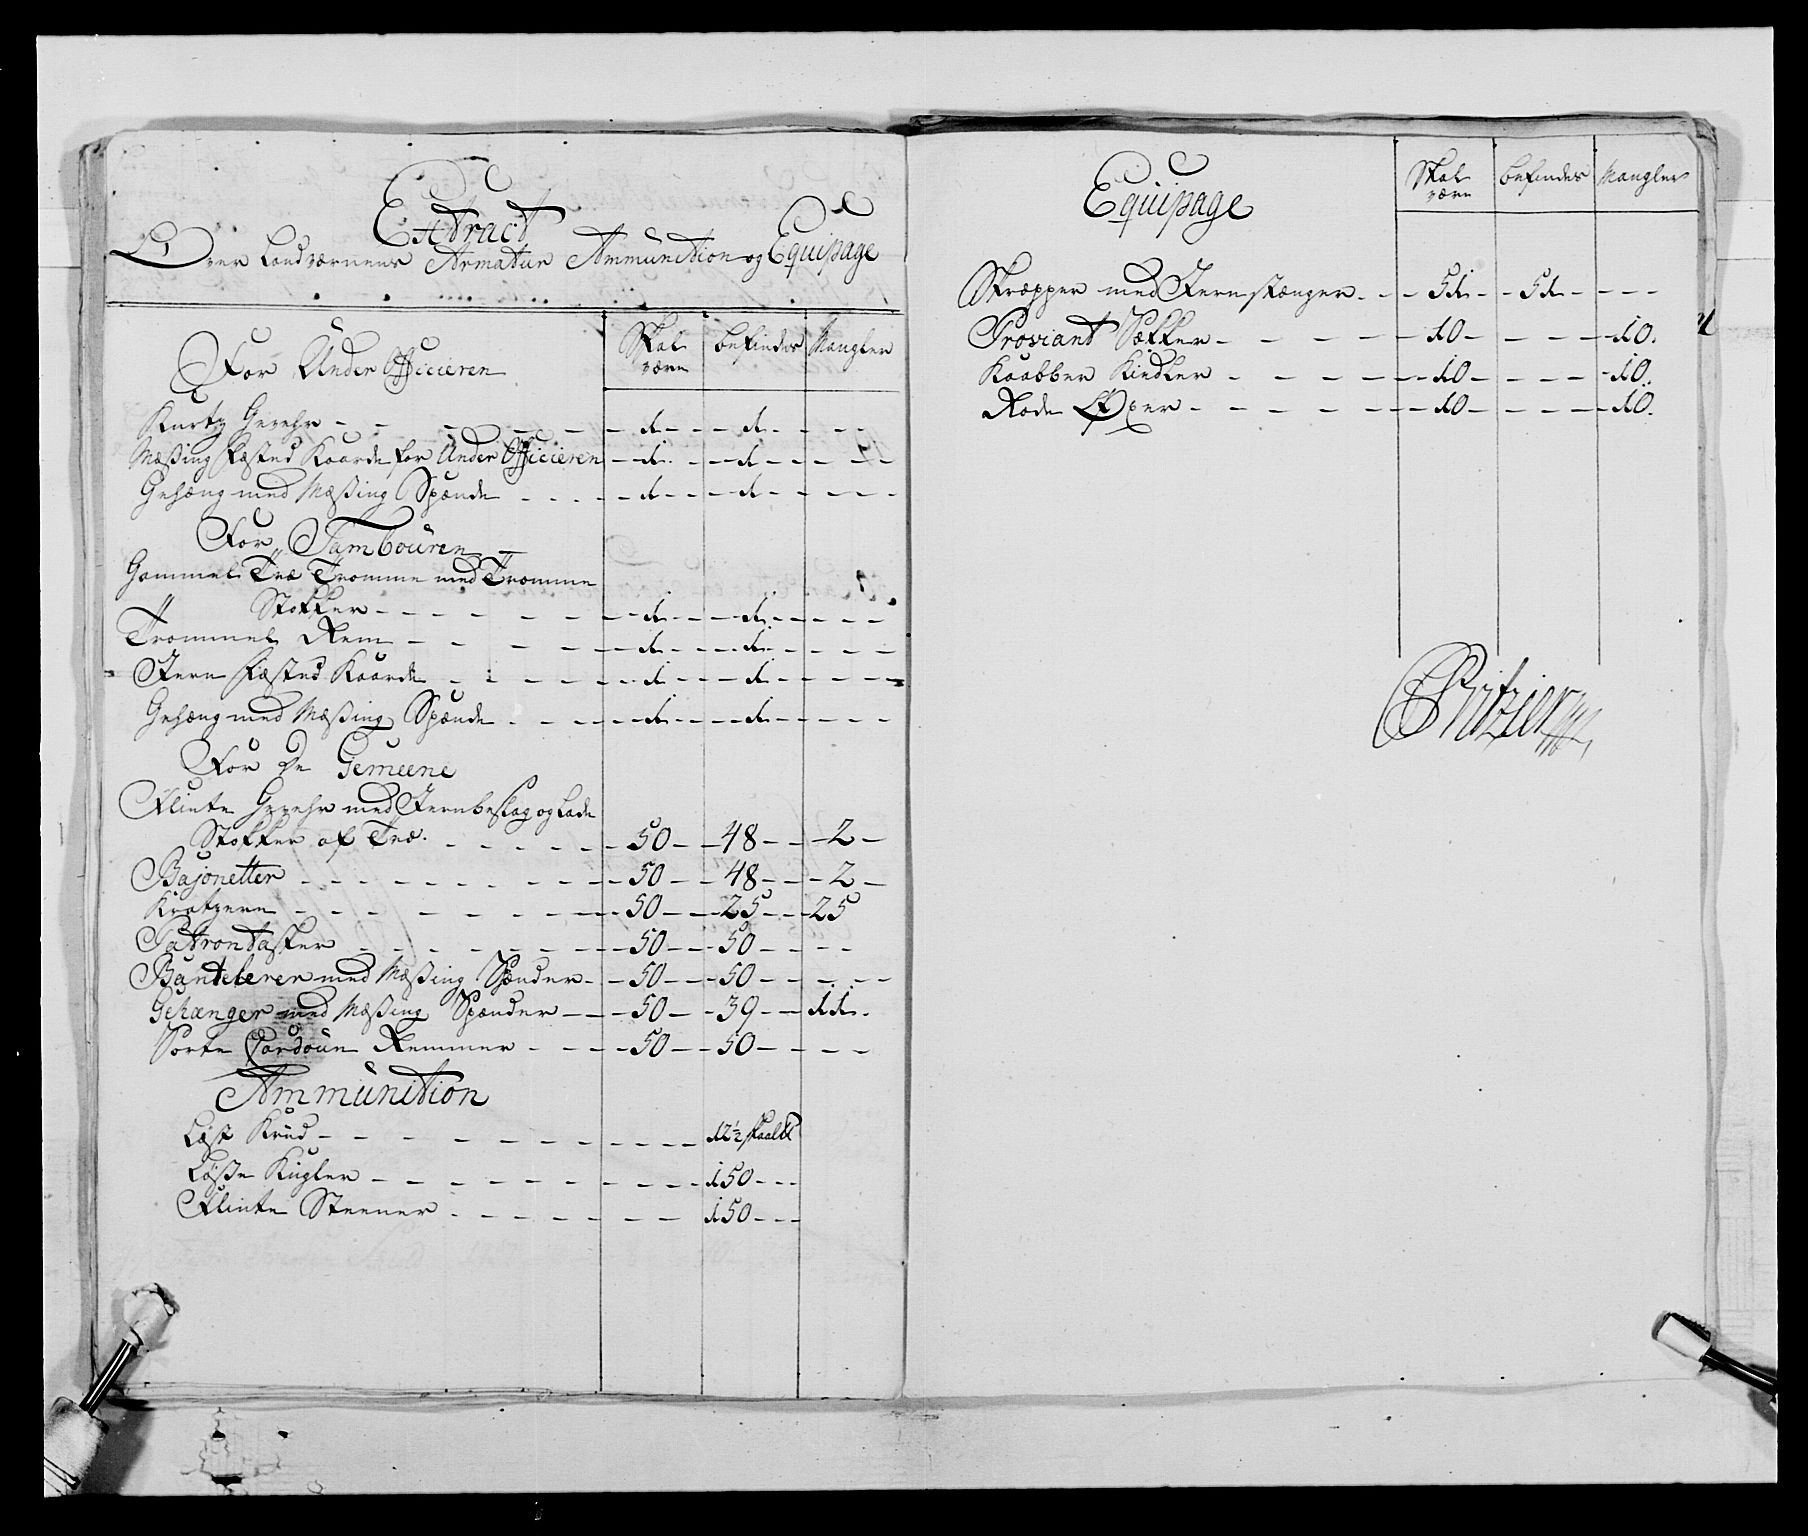 Extract
Over Landværnens Armatur Ammunition og Equipage
For Under Officieren
Skal være befindes Mangler
Kurtz Gevehr - 1 - 1 - -
Mæssing fæsted Kaarde for Under Officieren - 1 - 1 - -
Gehæng med Mæssing Spænde - 1 - 1 - -
For Tambouren
Gammel Træ Tromme med Tromme
Stokker - 1 - 1 - -
Trommel Rem - 1 - 1 - -
Jern fæsted Kaarde - 1 - 1 - -
Gehæng med Mæssing Spænde - 1 - 1 - -
For De Gemeene
Flinte Gevehr med Jernbeslag og lade
Stokker af Træ - 50 - 48 - 2 -
Bajonetter - 50 - 48 - 2 -
Kratzere - 50 - 25 - 25
Patrontasker - 50 - 50 - -
Bantelerer med Mæssing Spænder - 50 - 50 - -
Gehænger med Mæssing Spænder - 50 - 39 - 11 -
Sorte Corduun Remmer - 50 - 50 - -
Ammunition
Løst Krud - 12½ skaal℔
Løsse Kugler - 150 -
Flinte Steener - 150 -
Equipage
Skal være befindes Mangler
Skræpper med Jernstænger - 51 - 51 - -
Proviant Sækker - 10 - - 10.
Kaabber Kiedler - 10 - - 10.
Rode Øxer - 10 - - 10.